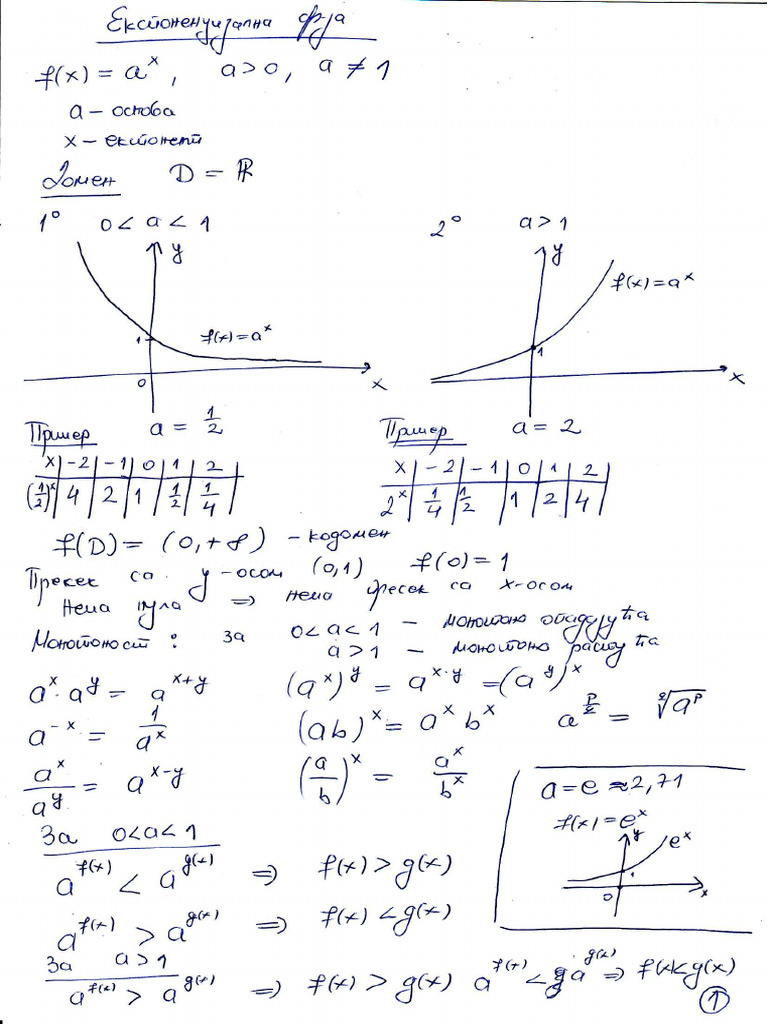 Експоненцијална ф-ја
f(x) = aˣ, a > 0, a ≠ 1
a – основа
x – експонент
Домен D = ℝ
1° 0 < a < 1
2° a > 1
y
y
f(x) = aˣ
1
f(x) = aˣ
1
0
x
x
Пример a = 1/2
Пример a = 2
x | -2 | -1 | 0 | 1 | 2
(1/2)ˣ | 4 | 2 | 1 | 1/2 | 1/4
x | -2 | -1 | 0 | 1 | 2
2ˣ | 1/4 | 1/2 | 1 | 2 | 4
f(D) = (0, +∞) – кодомен
Пресек са y-осом (0,1) f(0) = 1
Нема нула ⇒ нема пресек са x-осом
Монотоност: за 0 < a < 1 – монотоно опадајућа
a > 1 – монотоно растућа
aˣ · a^y = a^(x+y) (aˣ)^y = a^(x·y) = (a^y)ˣ
a^(-x) = 1/aˣ (ab)ˣ = aˣ bˣ
aˣ/a^y = a^(x-y) (a/b)ˣ = aˣ/bˣ
a = e ≈ 2,71
f(x) = eˣ
y
eˣ
1
0
x
За 0 < a < 1
a^f(x) < a^g(x) ⇒ f(x) > g(x)
a^f(x) > a^g(x) ⇒ f(x) < g(x)
За a > 1
a^f(x) > a^g(x) ⇒ f(x) > g(x) a^f(x) < a^g(x) ⇒ f(x) < g(x)
1